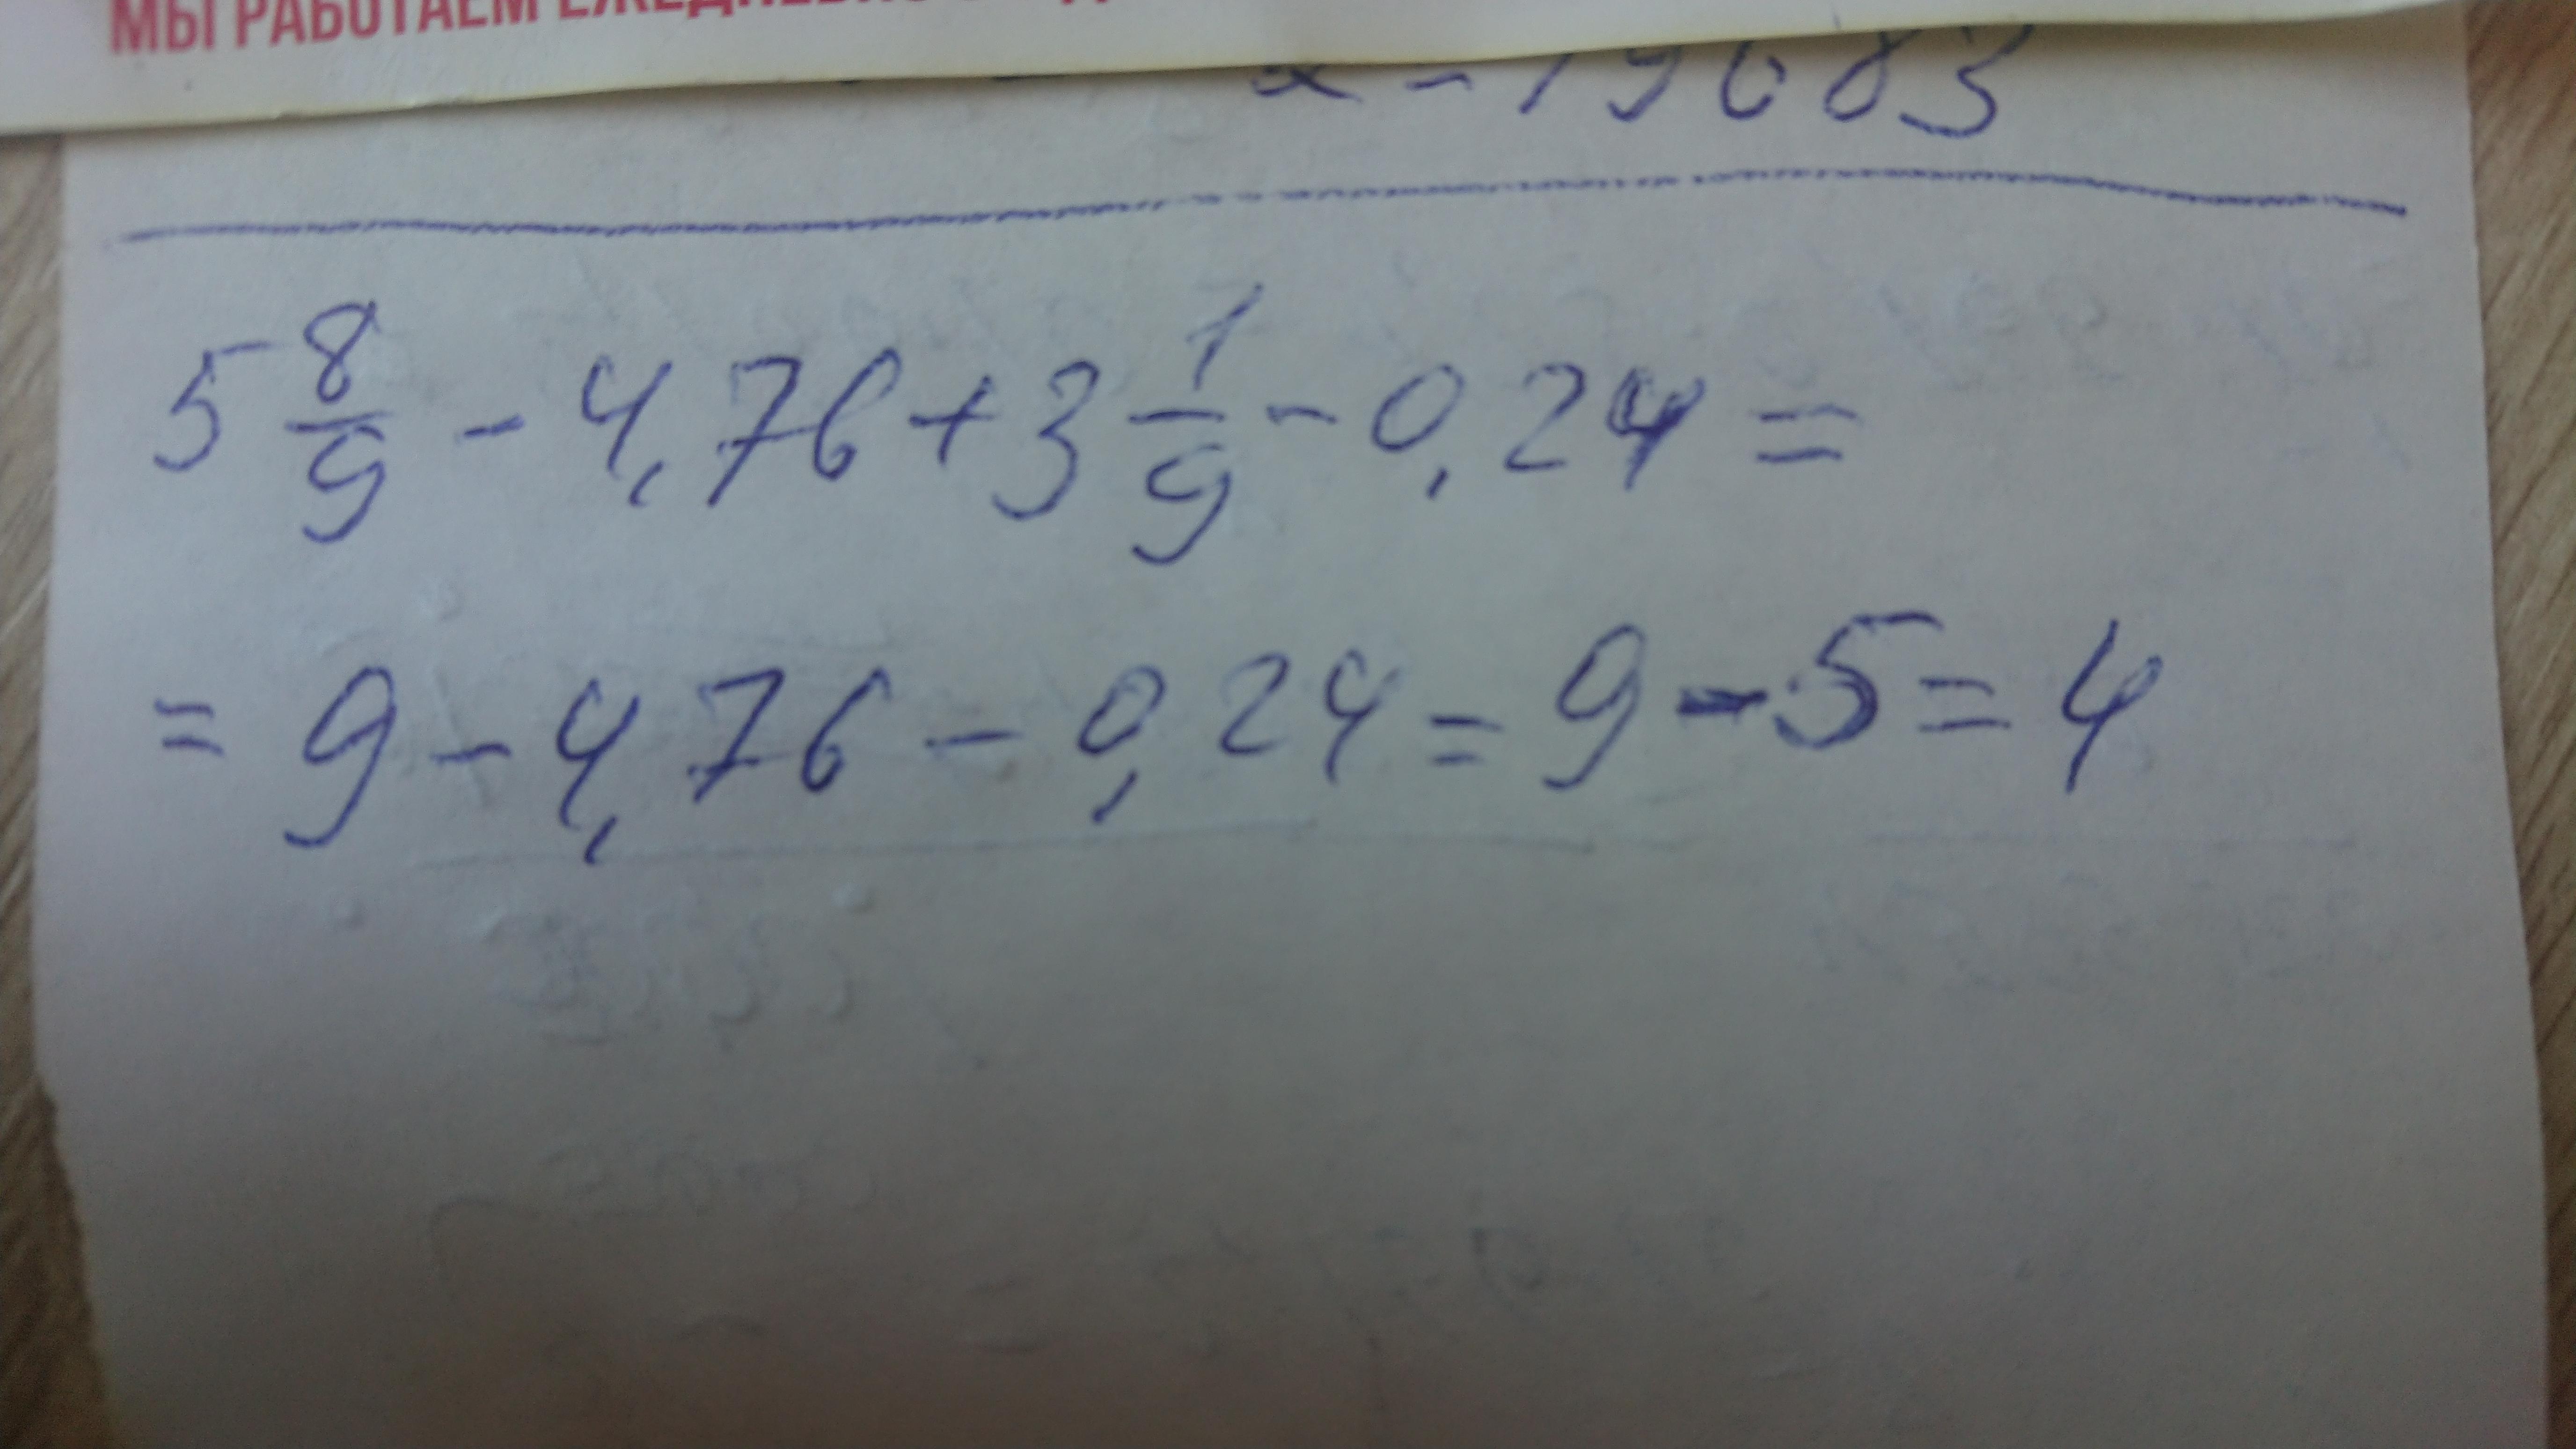 МЫ РАБОТАЕМ
x = 19683
5 8/9 - 4,76 + 3 1/9 - 0,24 =
= 9 - 4,76 - 0,24 = 9 - 5 = 4